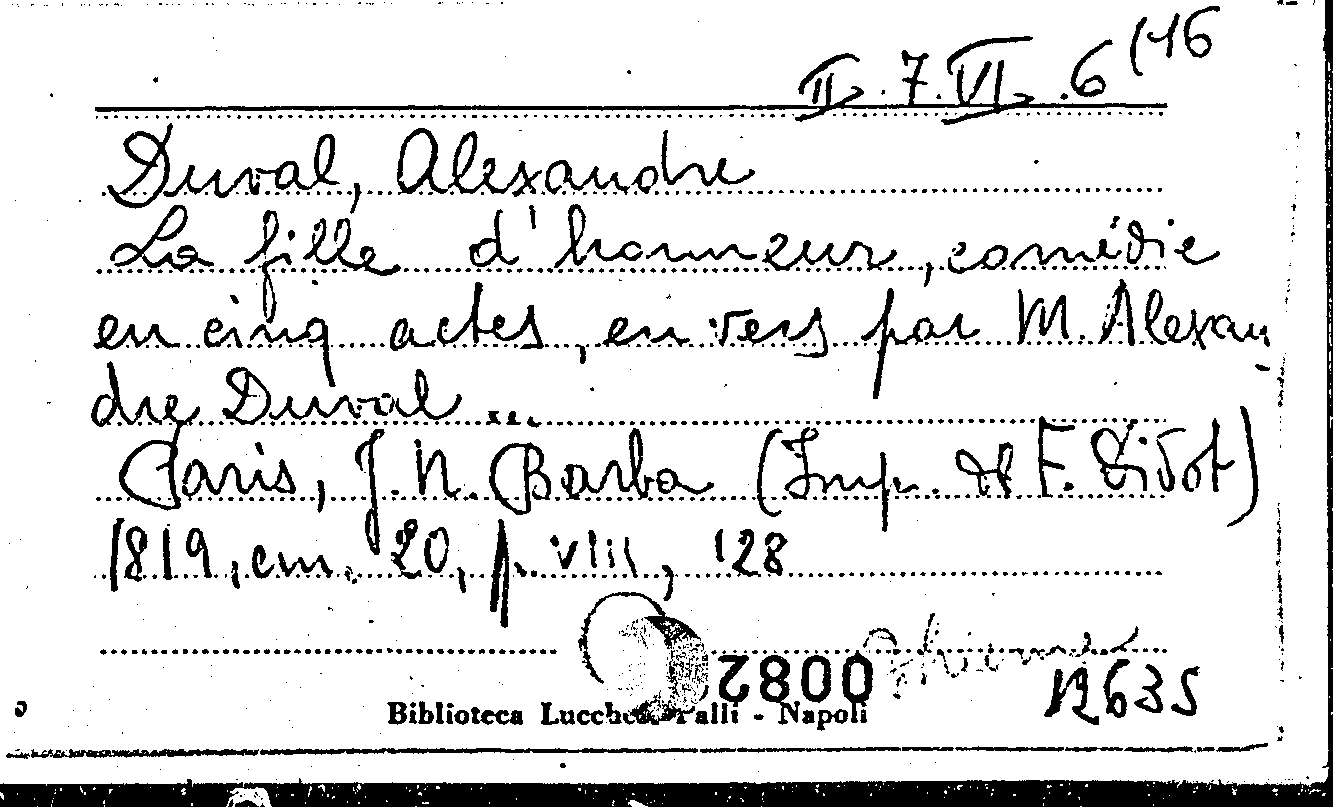 II. 7. VI. 6 (46
Duval, Alexandre
La fille d'honneur, comédie
en cinq actes, en vers par M. Alexan
dre Duval ...
Paris, J. N. Barba (Imp. de F. Didot)
1819, cm. 20, p. VIII, 128
0082
12635
Biblioteca Lucchesi Palli - Napoli